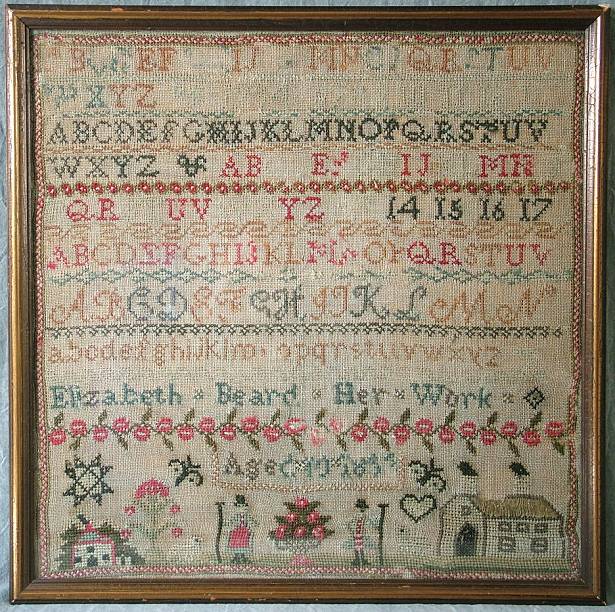 B EF IJ MN QR TUV
XYZ
ABCDEFGHIJKLMNOPQRSTUV
WXYZ AB EF IJ MN
QR UV YZ 14 15 16 17
ABCDEFGHIJKLMNOPQRSTUV
ABCDEFGHIJKLMN
abcdefghijklm opqrstuvwxyz
Elizabeth Beard Her Work
Aged